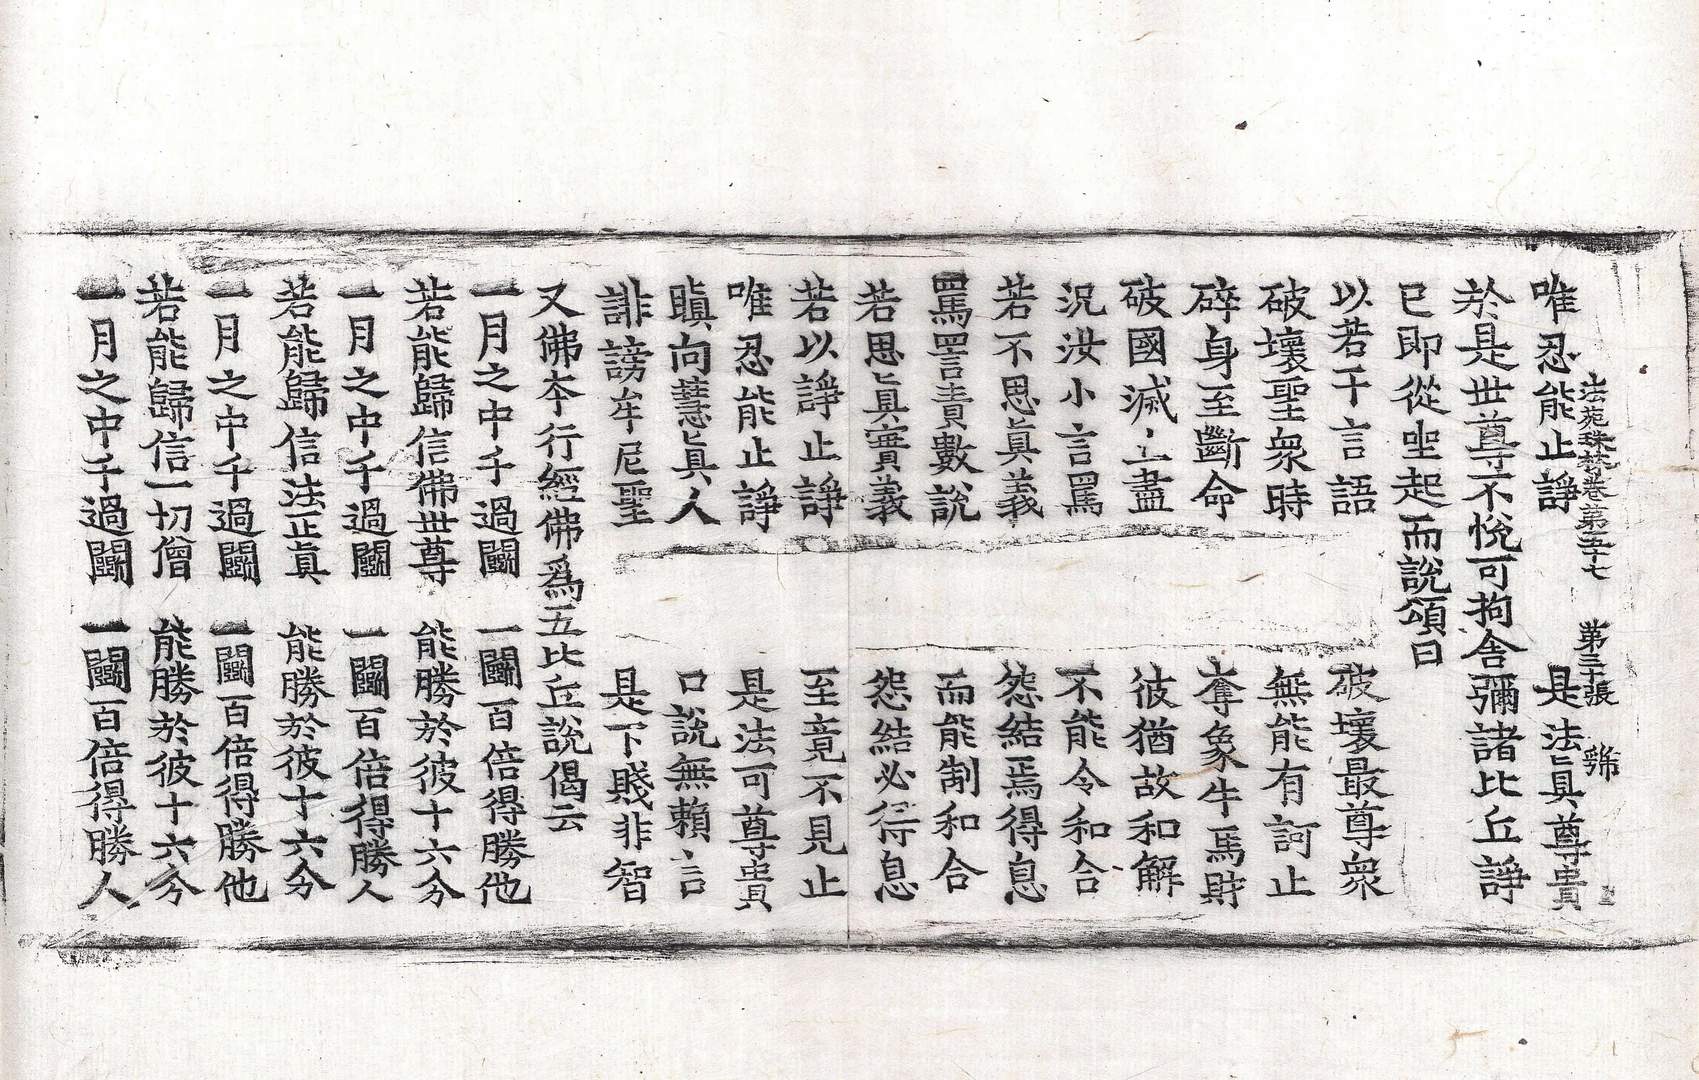 法苑珠林卷第五十七 第三十張 緜
唯忍能止諍 是法真尊貴
於是世尊不悅可拘舍彌諸比丘諍
已即從坐起而說頌曰
以若干言語 破壞最尊衆
破壞聖衆時 無能有訶止
碎身至斷命 奪象牛馬財
破國滅亡盡 彼猶故和解
況汝小言罵 不能令和合
若不思真義 怨結焉得息
罵詈責數說 而能制和合
若思真實義 怨結必得息
若以諍止諍 至竟不見止
唯忍能止諍 是法可尊貴
瞋向慧真人 口說無賴言
誹謗牟尼聖 是下賤非智
又佛本行經佛爲五比丘說偈云
一月之中千過鬪 一鬪百倍得勝他
若能歸信佛世尊 能勝於彼十六分
一月之中千過鬪 一鬪百倍得勝人
若能歸信法正真 能勝於彼十六分
一月之中千過鬪 一鬪百倍得勝他
若能歸信一切僧 能勝於彼十六分
一月之中千過鬪 一鬪百倍得勝人